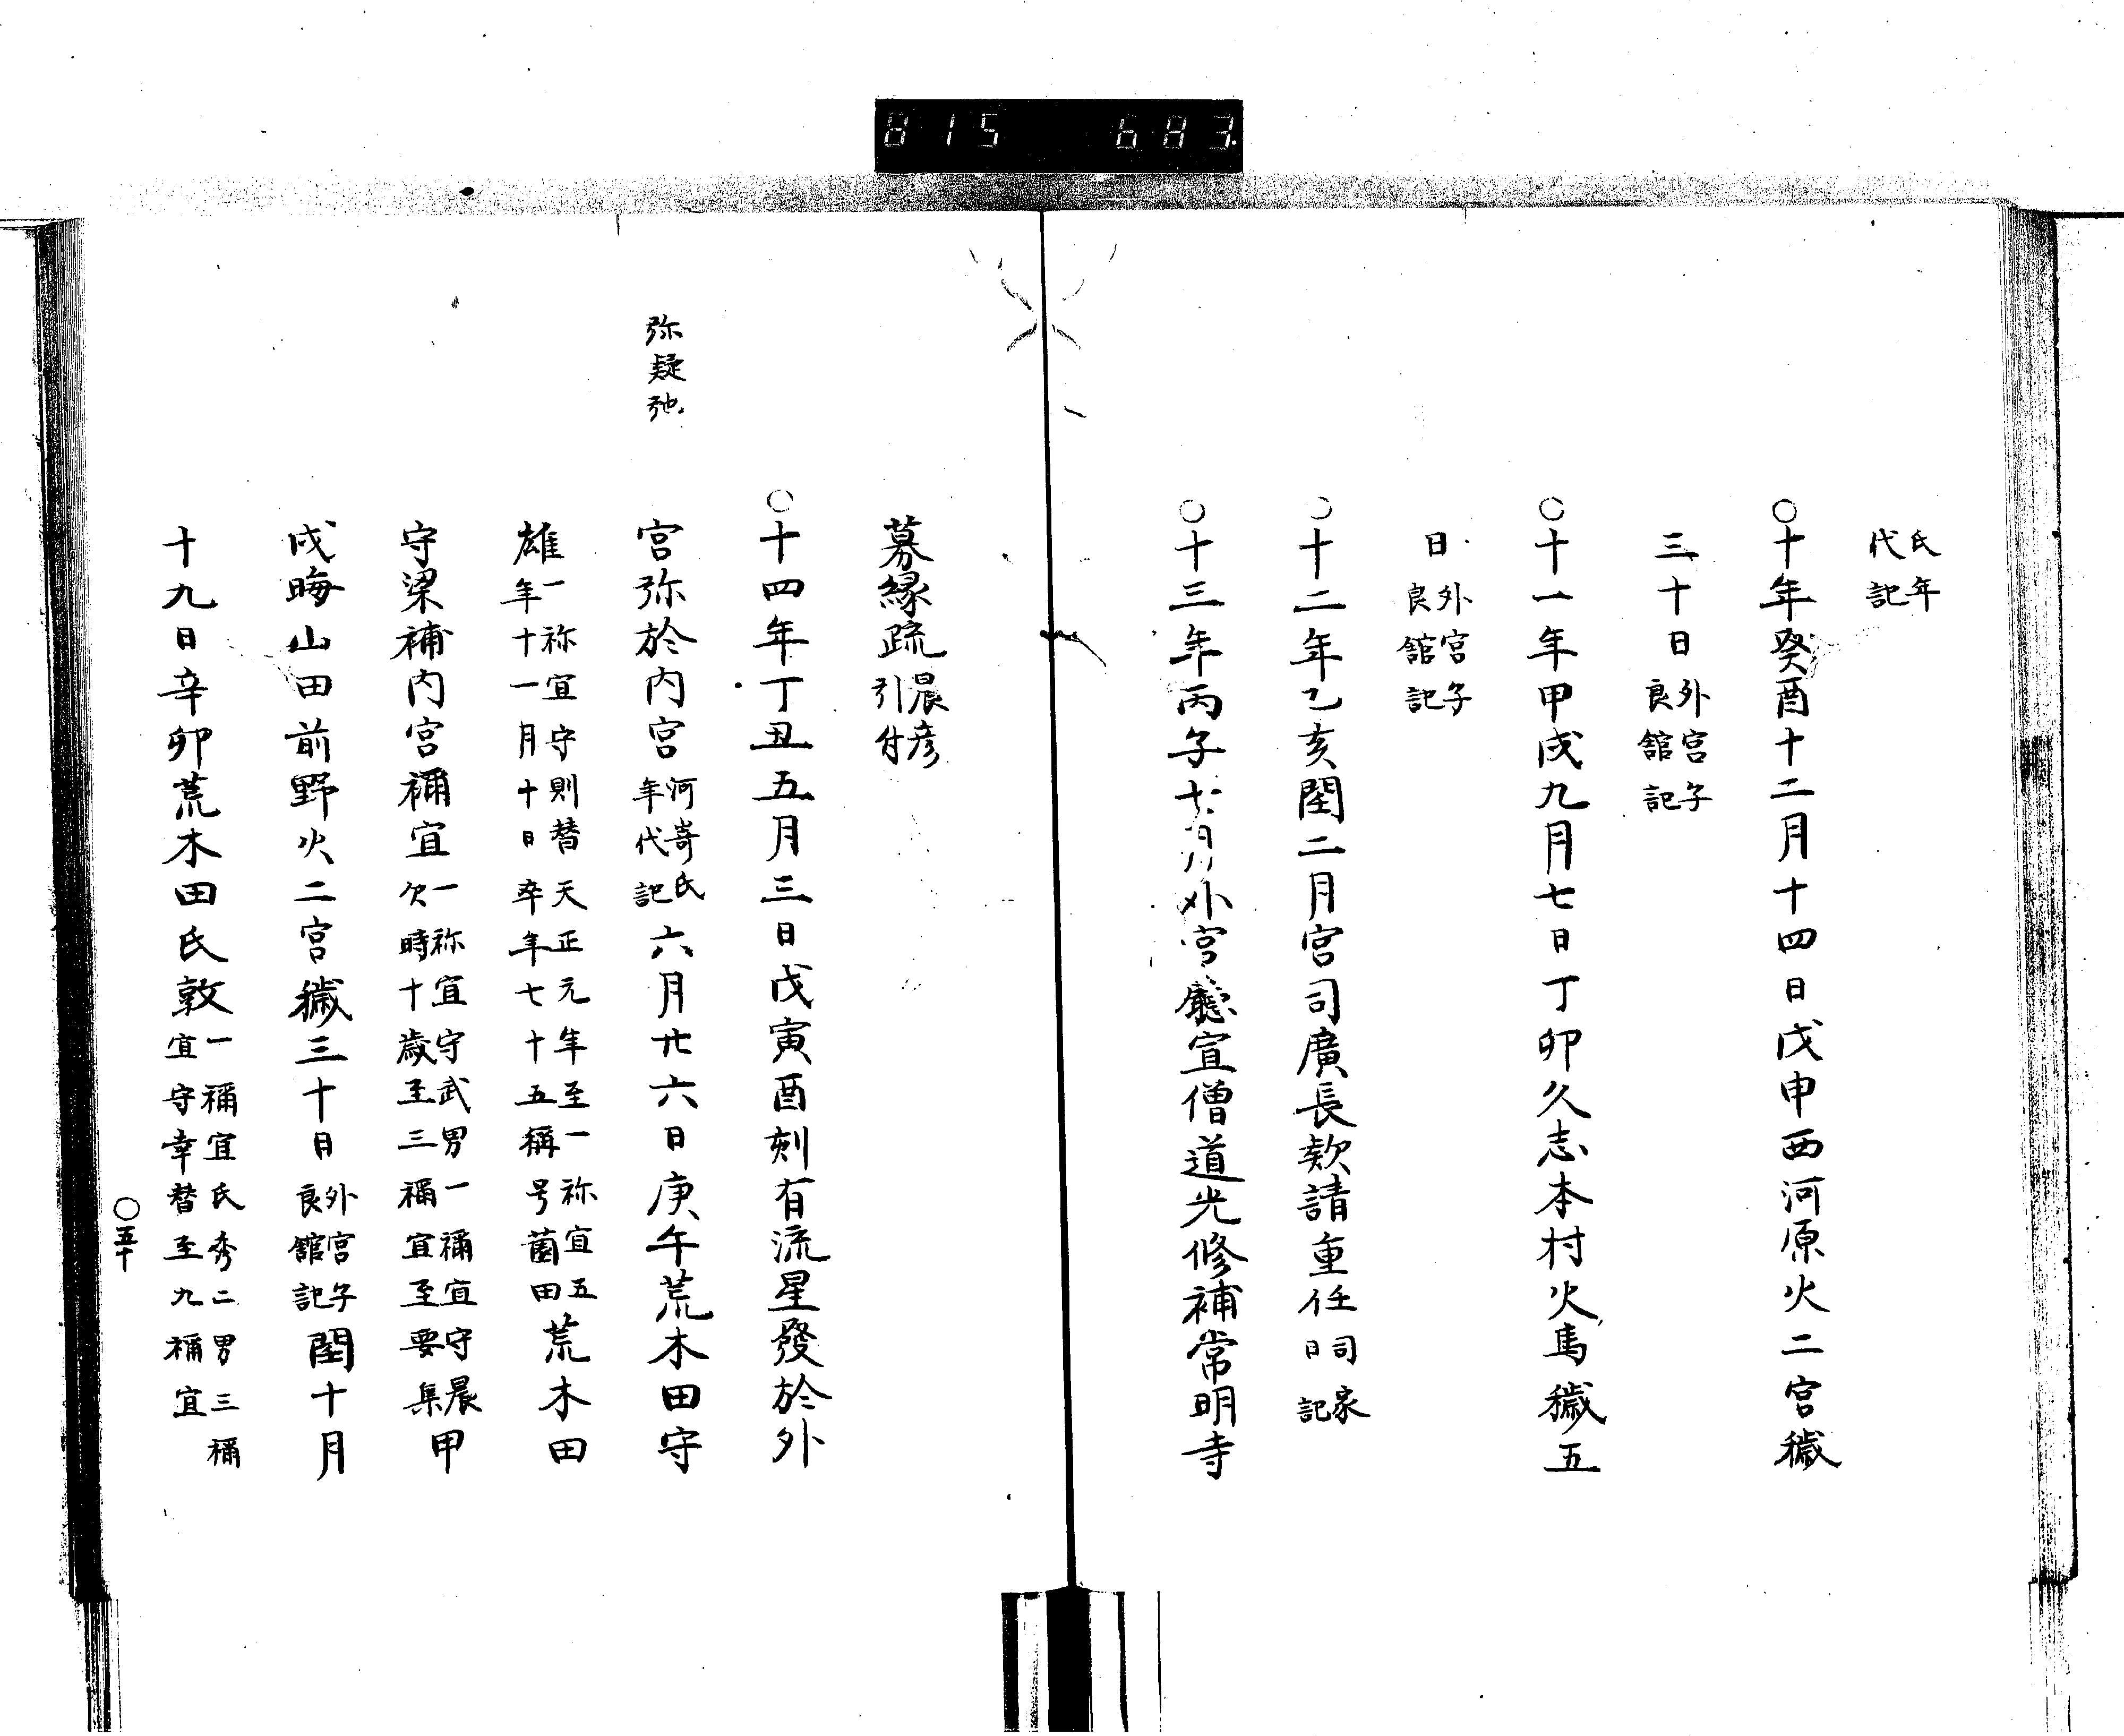 815 683.
氏年代記
○十年癸酉十二月十四日戊申西河原火二宮穢
三十日外宮子良館記
○十一年甲戌九月七日丁卯久志本村火馬穢五
日外宮子良館記
○十二年乙亥閏二月宮司廣長欸請重任司家日記
○十三年丙子 月外宮廳宣僧道光修補常明寺
募縁疏晨彦引付
○十四年丁丑五月三日戊寅酉刻有流星發於外
弥疑弛
宮弥於内宮河嵜氏年代記六月廿六日庚午荒木田守
雄一祢宜守則替天正元年至一祢宜五年十一月十日卒年七十五稱号薗田荒木田
守梁補内宮禰宜一祢宜守武男一禰宜守晨欠時十歳至三禰宜至要集甲
戌晦山田前野火二宮穢三十日外宮子良館記閏十月
十九日辛卯荒木田氏敦一禰宜氏秀二男三禰宜守幸替至九禰宜
○五十